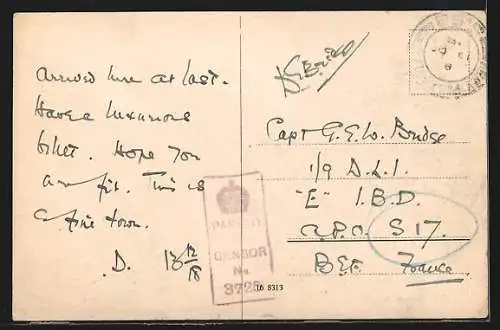 Arrived here at last.
Have a luxurious
billet. Hope you
are fit. This is
a fine town.
D. 13 12/18
PASSED
CENSOR
No
3725
Capt G. E. W. Bridge
1/9 D.L.I
"E" I.B.D.
A.P.O. S 17.
BEF France
16 8313